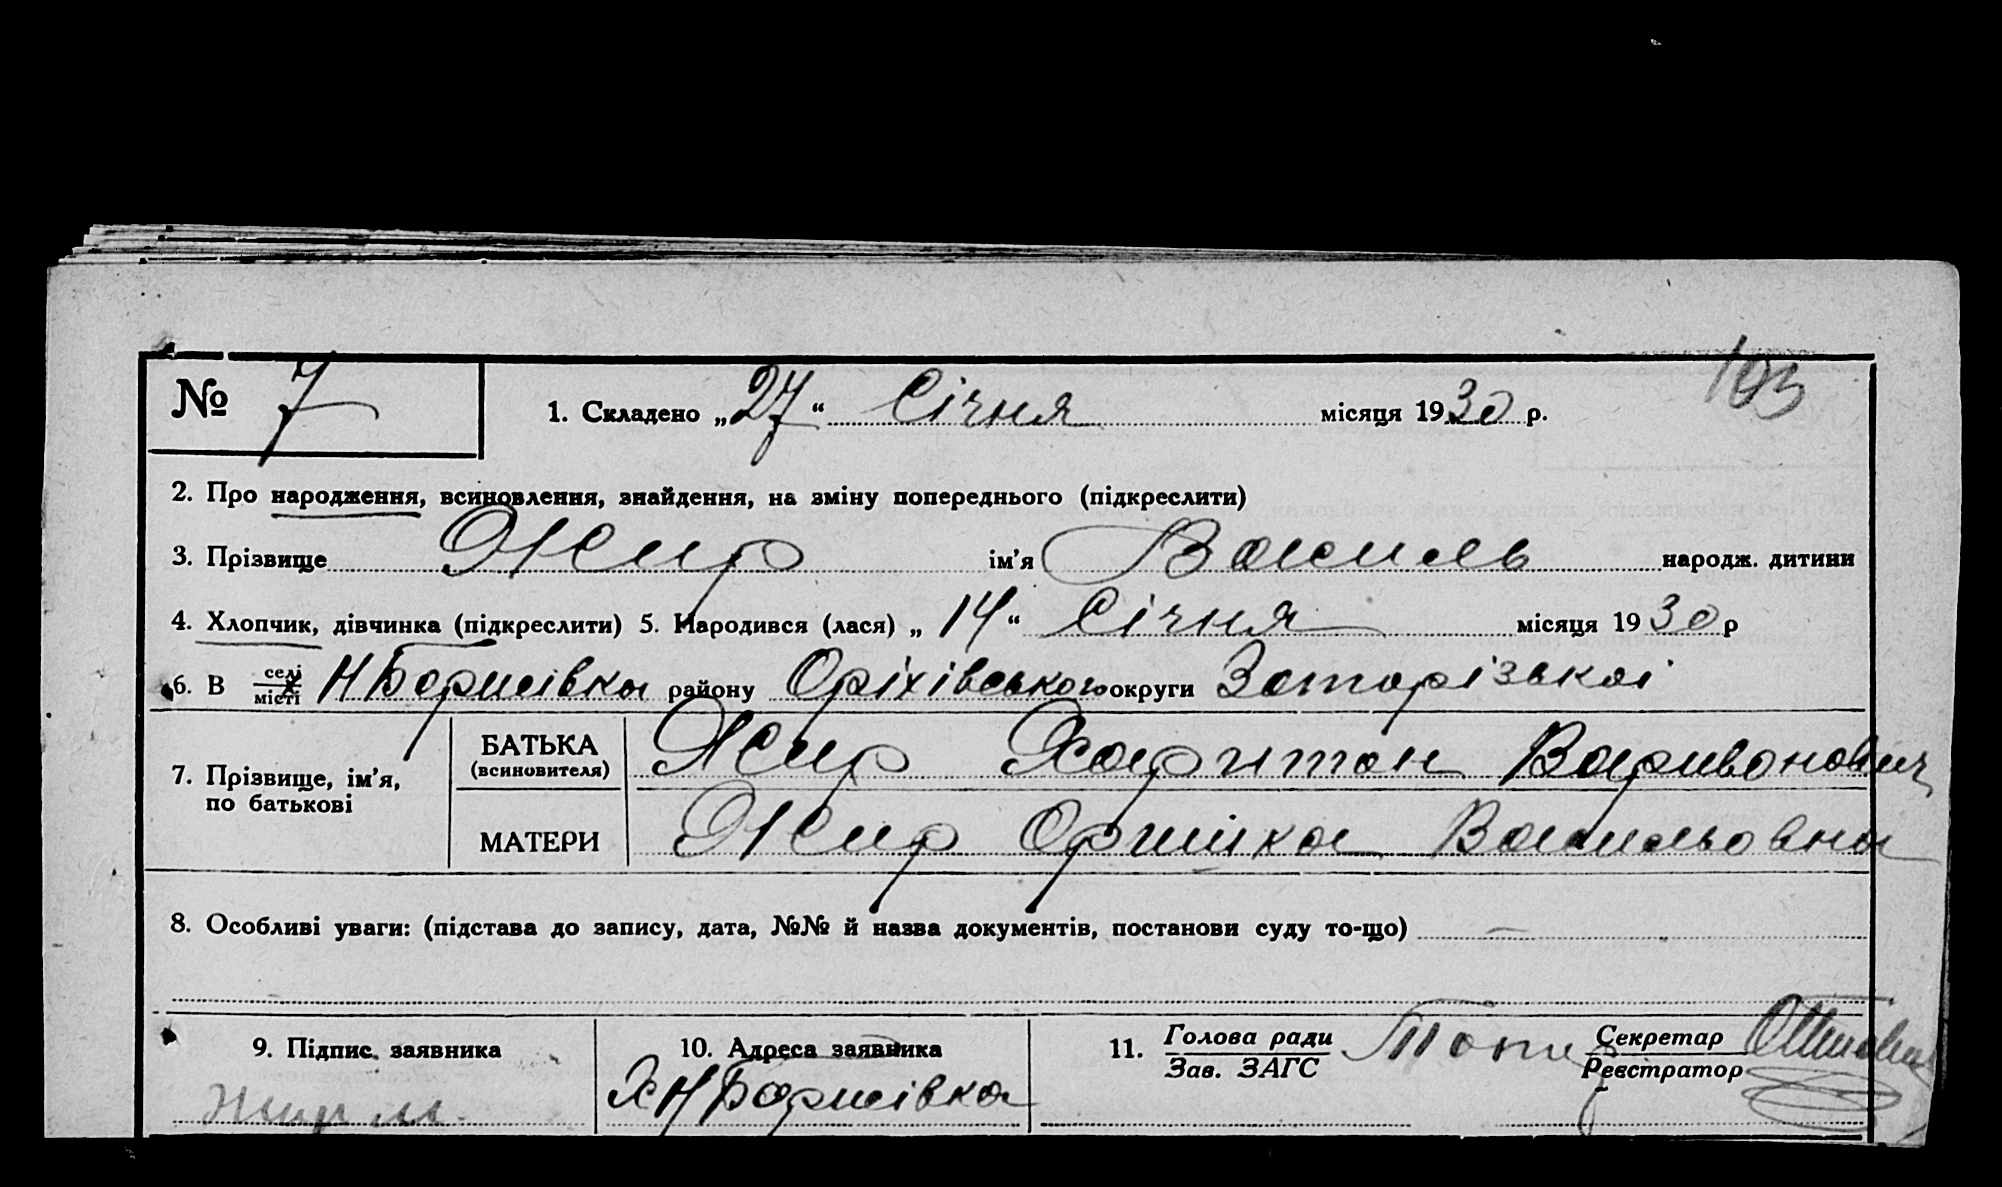 193
№ 7 1. Складено „27“ Січня місяця 1930 р.
2. Про народження, всиновлення, знайдення, на зміну попереднього (підкреслити)
3. Прізвище Жир ім'я Василь народж. дитини
4. Хлопчик, дівчинка (підкреслити) 5. Народився (лася) „14“ Січня місяця 1930 р
6. В селі/місті Н Борисівка району Оріхівського округи Запорізькаі
7. Прізвище, ім'я, по батькові
БАТЬКА (всиновителя) Жир Харитон Варивонович
МАТЕРИ Жир Оришка Васильовна
8. Особливі уваги: (підстава до запису, дата, №№ й назва документів, постанови суду то-що) —
9. Підпис заявника 10. Адреса заявника 11. Голова ради/Зав. ЗАГС Секретар/Реєстратор
Жир Х Н Борисівка